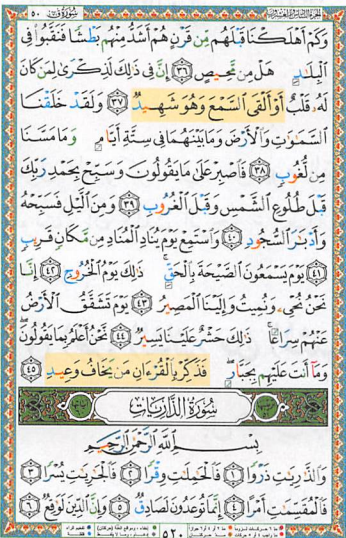 سُورَةُ قٓ ٥٠
وَكَمْ أَهْلَكْنَا قَبْلَهُم مِّن قَرْنٍ هُمْ أَشَدُّ مِنْهُم بَطْشًا فَنَقَّبُوا۟ فِى
ٱلْبِلَٰدِ هَلْ مِن مَّحِيصٍ ٣٦ إِنَّ فِى ذَٰلِكَ لَذِكْرَىٰ لِمَن كَانَ
لَهُۥ قَلْبٌ أَوْ أَلْقَى ٱلسَّمْعَ وَهُوَ شَهِيدٌ ٣٧ وَلَقَدْ خَلَقْنَا
ٱلسَّمَٰوَٰتِ وَٱلْأَرْضَ وَمَا بَيْنَهُمَا فِى سِتَّةِ أَيَّامٍ وَمَا مَسَّنَا
مِن لُّغُوبٍ ٣٨ فَٱصْبِرْ عَلَىٰ مَا يَقُولُونَ وَسَبِّحْ بِحَمْدِ رَبِّكَ
قَبْلَ طُلُوعِ ٱلشَّمْسِ وَقَبْلَ ٱلْغُرُوبِ ٣٩ وَمِنَ ٱلَّيْلِ فَسَبِّحْهُ
وَأَدْبَٰرَ ٱلسُّجُودِ ٤٠ وَٱسْتَمِعْ يَوْمَ يُنَادِ ٱلْمُنَادِ مِن مَّكَانٍ قَرِيبٍ
٤١ يَوْمَ يَسْمَعُونَ ٱلصَّيْحَةَ بِٱلْحَقِّ ذَٰلِكَ يَوْمُ ٱلْخُرُوجِ ٤٢ إِنَّا
نَحْنُ نُحْىِۦ وَنُمِيتُ وَإِلَيْنَا ٱلْمَصِيرُ ٤٣ يَوْمَ تَشَقَّقُ ٱلْأَرْضُ
عَنْهُمْ سِرَاعًا ذَٰلِكَ حَشْرٌ عَلَيْنَا يَسِيرٌ ٤٤ نَّحْنُ أَعْلَمُ بِمَا يَقُولُونَ
وَمَآ أَنتَ عَلَيْهِم بِجَبَّارٍ فَذَكِّرْ بِٱلْقُرْءَانِ مَن يَخَافُ وَعِيدِ ٤٥
سُورَةُ الذَّارِيَاتِ
بِسْمِ ٱللَّهِ ٱلرَّحْمَٰنِ ٱلرَّحِيمِ
وَٱلذَّٰرِيَٰتِ ذَرْوًا ١ فَٱلْحَٰمِلَٰتِ وِقْرًا ٢ فَٱلْجَٰرِيَٰتِ يُسْرًا ٣
فَٱلْمُقَسِّمَٰتِ أَمْرًا ٤ إِنَّمَا تُوعَدُونَ لَصَادِقٌ ٥ وَإِنَّ ٱلدِّينَ لَوَٰقِعٌ ٦
٥٢٠